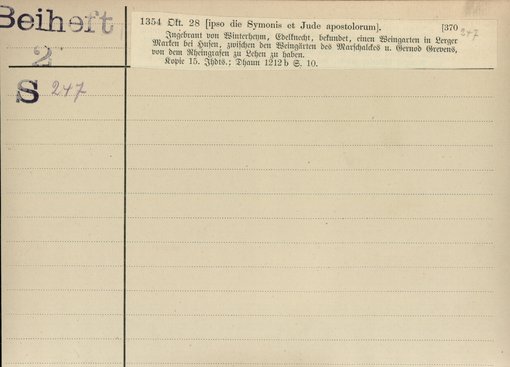 Beiheft
2
S 247
1354 Okt. 28 [ipso die Symonis et Jude apostolorum]. [370
247
Ingebrant von Winterheym, Edelknecht, bekundet, einen Weingarten in Lerger
Marken bei Husen, zwischen den Weingärten des Marschalckes u. Gernod Grevens,
von dem Rheingrafen zu Lehen zu haben.
Kopie 15. Jhdts.; Dhaun 1212 b S. 10.